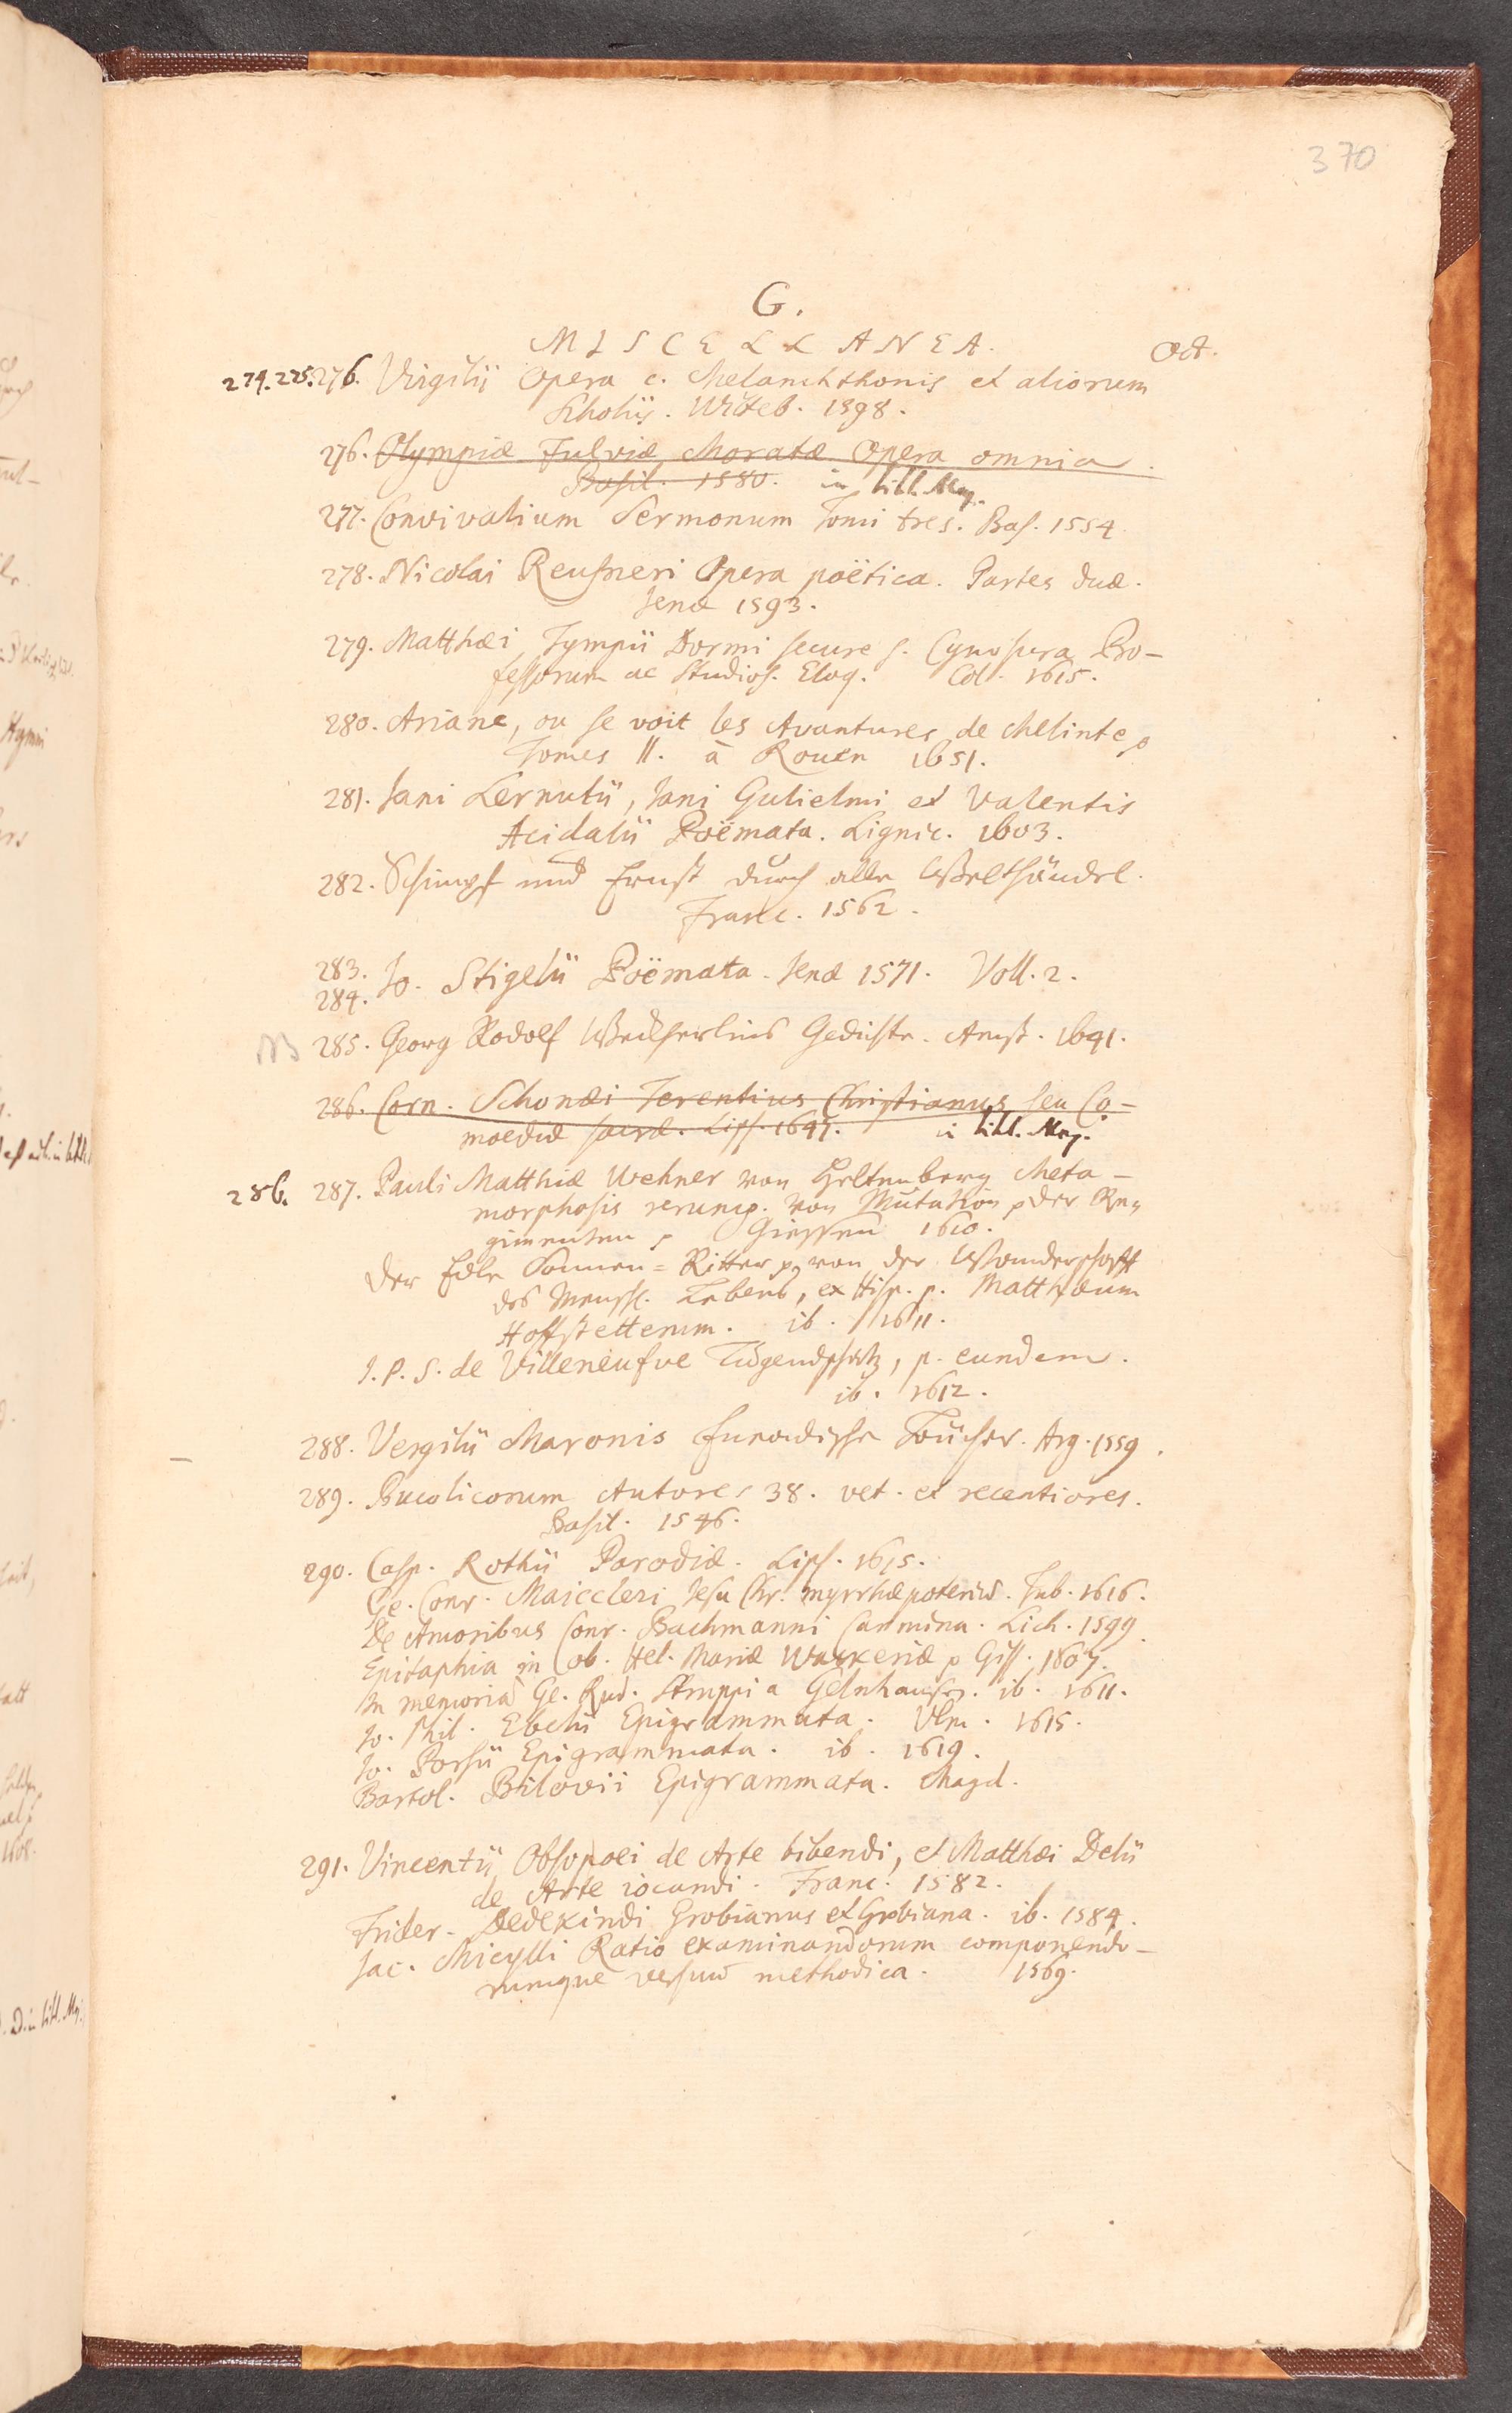 370
G.
MISCELLANEA. Oct.
274. 275. 276. Virgilii Opera c. Melanchthonis et aliorum
Scholiis. Witeb. 1598.
276. Olympiæ Fulviæ Moratæ Opera omnia.
Basil. 1580. in litt. Mey.
277. Convivalium Sermonum Tomi tres. Bas. 1554
278. Nicolai Reusneri Opera poëtica. Partes duæ.
Jenæ 1593.
279. Matthæi Tympii Dormi secure s. Cynosura Pro-
fessorum ac Studios. Eloq. Col. 1615.
280. Ariane, ou se voit les Avantures de Melinte
Tomes II. à Rouen 1651.
281. Jani Lernutii, Jani Gulielmi et Valentis
Acidalii Poëmata. Lignic. 1603.
282. Schimpf und Ernst durch alle Welthändel.
Franc. 1562.
283.
284. Jo. Stigelii Poëmata. Jenæ 1571. Voll. 2.
NB 285. Georg Rodolf Weckherlins Gedichte. Amst. 1641.
286. Corn. Schonæi Terentius Christianus seu Co-
moediæ sacræ. Lips. 1647. in litt. Mey.
286. 287. Pauli Matthiæ Wehner von Heltenberg Meta-
morphosis rerump. von Mutation der Re-
gimenten Giessen 1610.
Der Edle Sonnen-Ritter von der Wanderschafft
des Menschl. Lebens, ex Hisp. p. Matthæum
Hoffstetterum. ib. 1611.
J. P. S. de Villeneufve Tugendschatz, p. eundem.
ib. 1612.
288. Vergilii Maronis Eneadische Bücher. Arg. 1559.
289. Bucolicorum Autores 38. vet. et recentiores.
Basil. 1546.
290. Casp. Rothii Parodiæ. Lips. 1615.
Ge. Conr. Maiccleri Jesu Chr. myrrhæpotenus. Tub. 1616.
De Amoribus Conr. Bachmanni Carmina. Lich. 1599.
Epitaphia in ob. Hel. Mariæ Wackeriæ Giss. 1607.
In memoriā Ge. Rud. Struppi a Gelnhausen. ib. 1611.
Jo. Phil. Ebelii Epigrammata. Vlm. 1615.
Jo. Porsii Epigrammata. ib. 1619.
Bartol. Bilovii Epigrammata. Magd.
291. Vincentii Obsopoei de Arte bibendi, et Matthæi Delii
de Arte iocandi. Franc. 1582.
Frider. Dedekindi Grobianus et Grobiana. ib. 1584.
Jac. Micylli Ratio examinandorum componendo-
rumque versuum methodica. 1569.